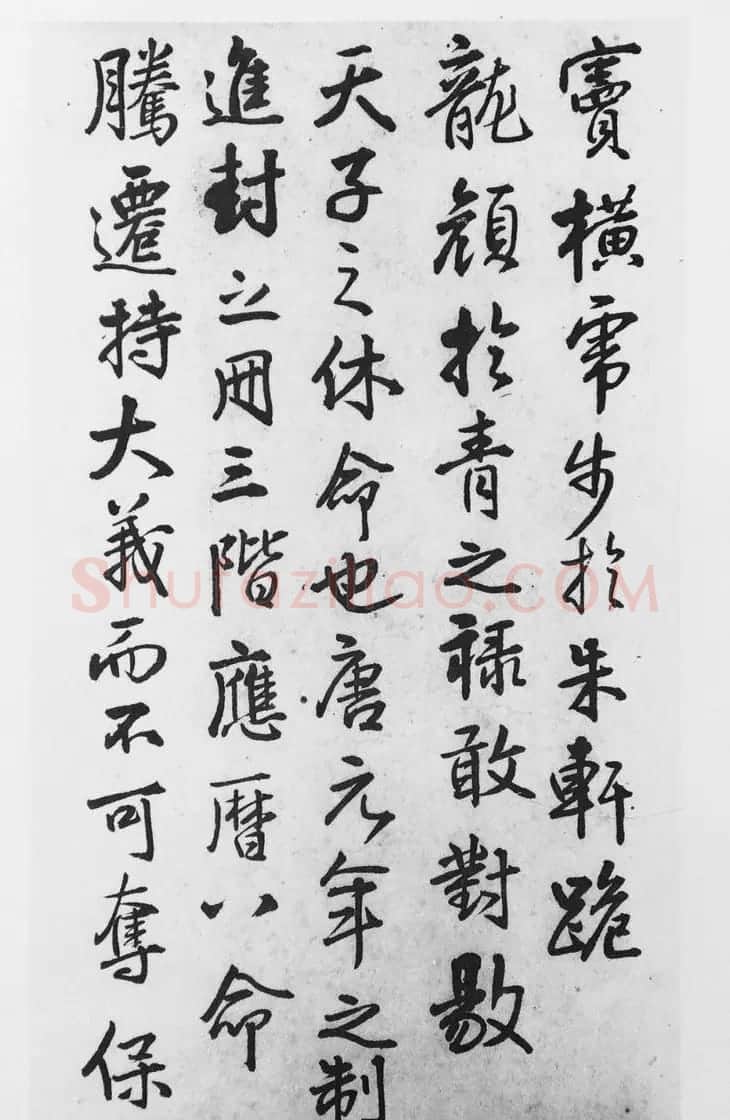 賓橫霈步於朱軒跪
龍顔於青之祿敢對敭
天子之休命也唐元年之制
進封之冊三階應曆八命
騰遷持大義而不可奪保
shufaziliao.COM